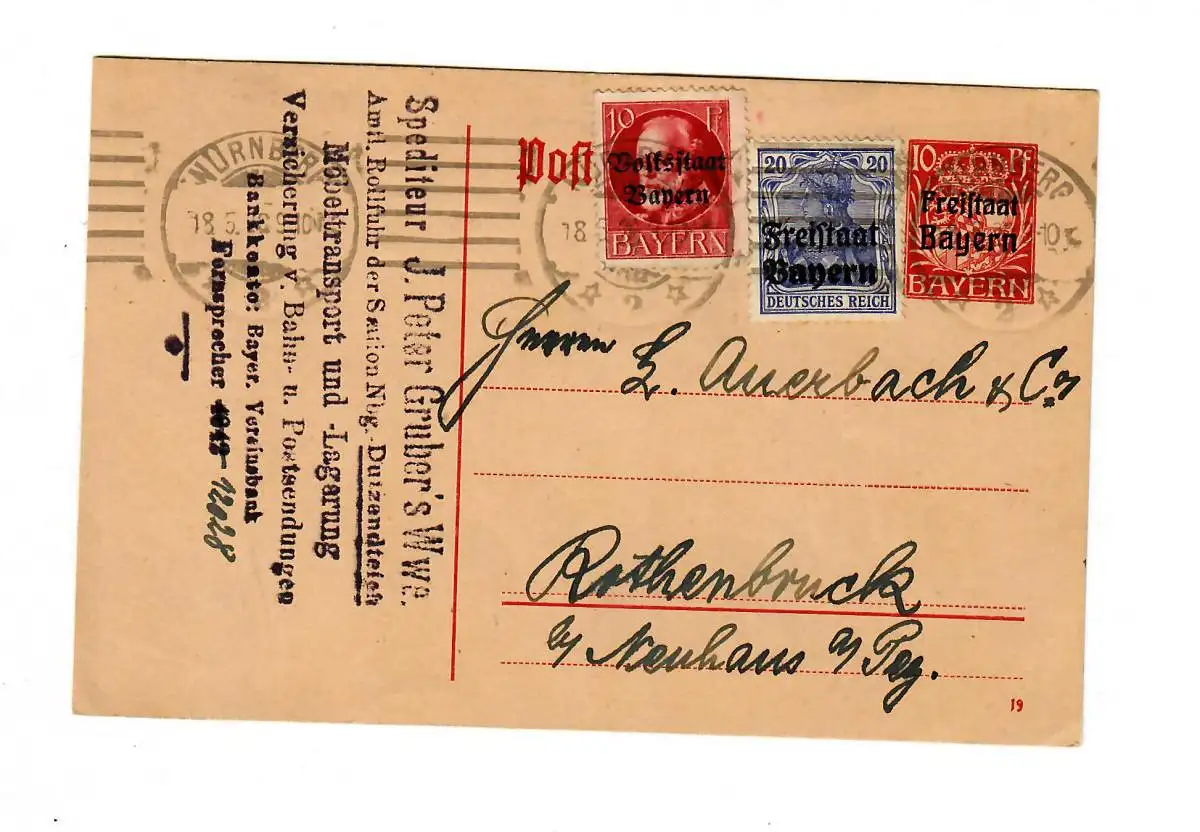 Spediteur J. Peter Gruber's Wwe.
Amtl. Rollfuhr der Station Nbg.-Dutzendteich
Möbeltransport und -Lagerung
Versicherung v. Bahn- u. Postsendungen
Bankkonto: Bayer. Vereinsbank
Fernsprecher 12028
NÜRNBERG
18.5.
2
Post
10 Pf
Volksstaat
Bayern
BAYERN
20 20
Freistaat
Bayern
DEUTSCHES REICH
10 Pf
Freistaat
Bayern
BAYERN
Herren L. Auerbach & Co.
Rothenbruck
b/ Neuhaus a/ Peg.
19